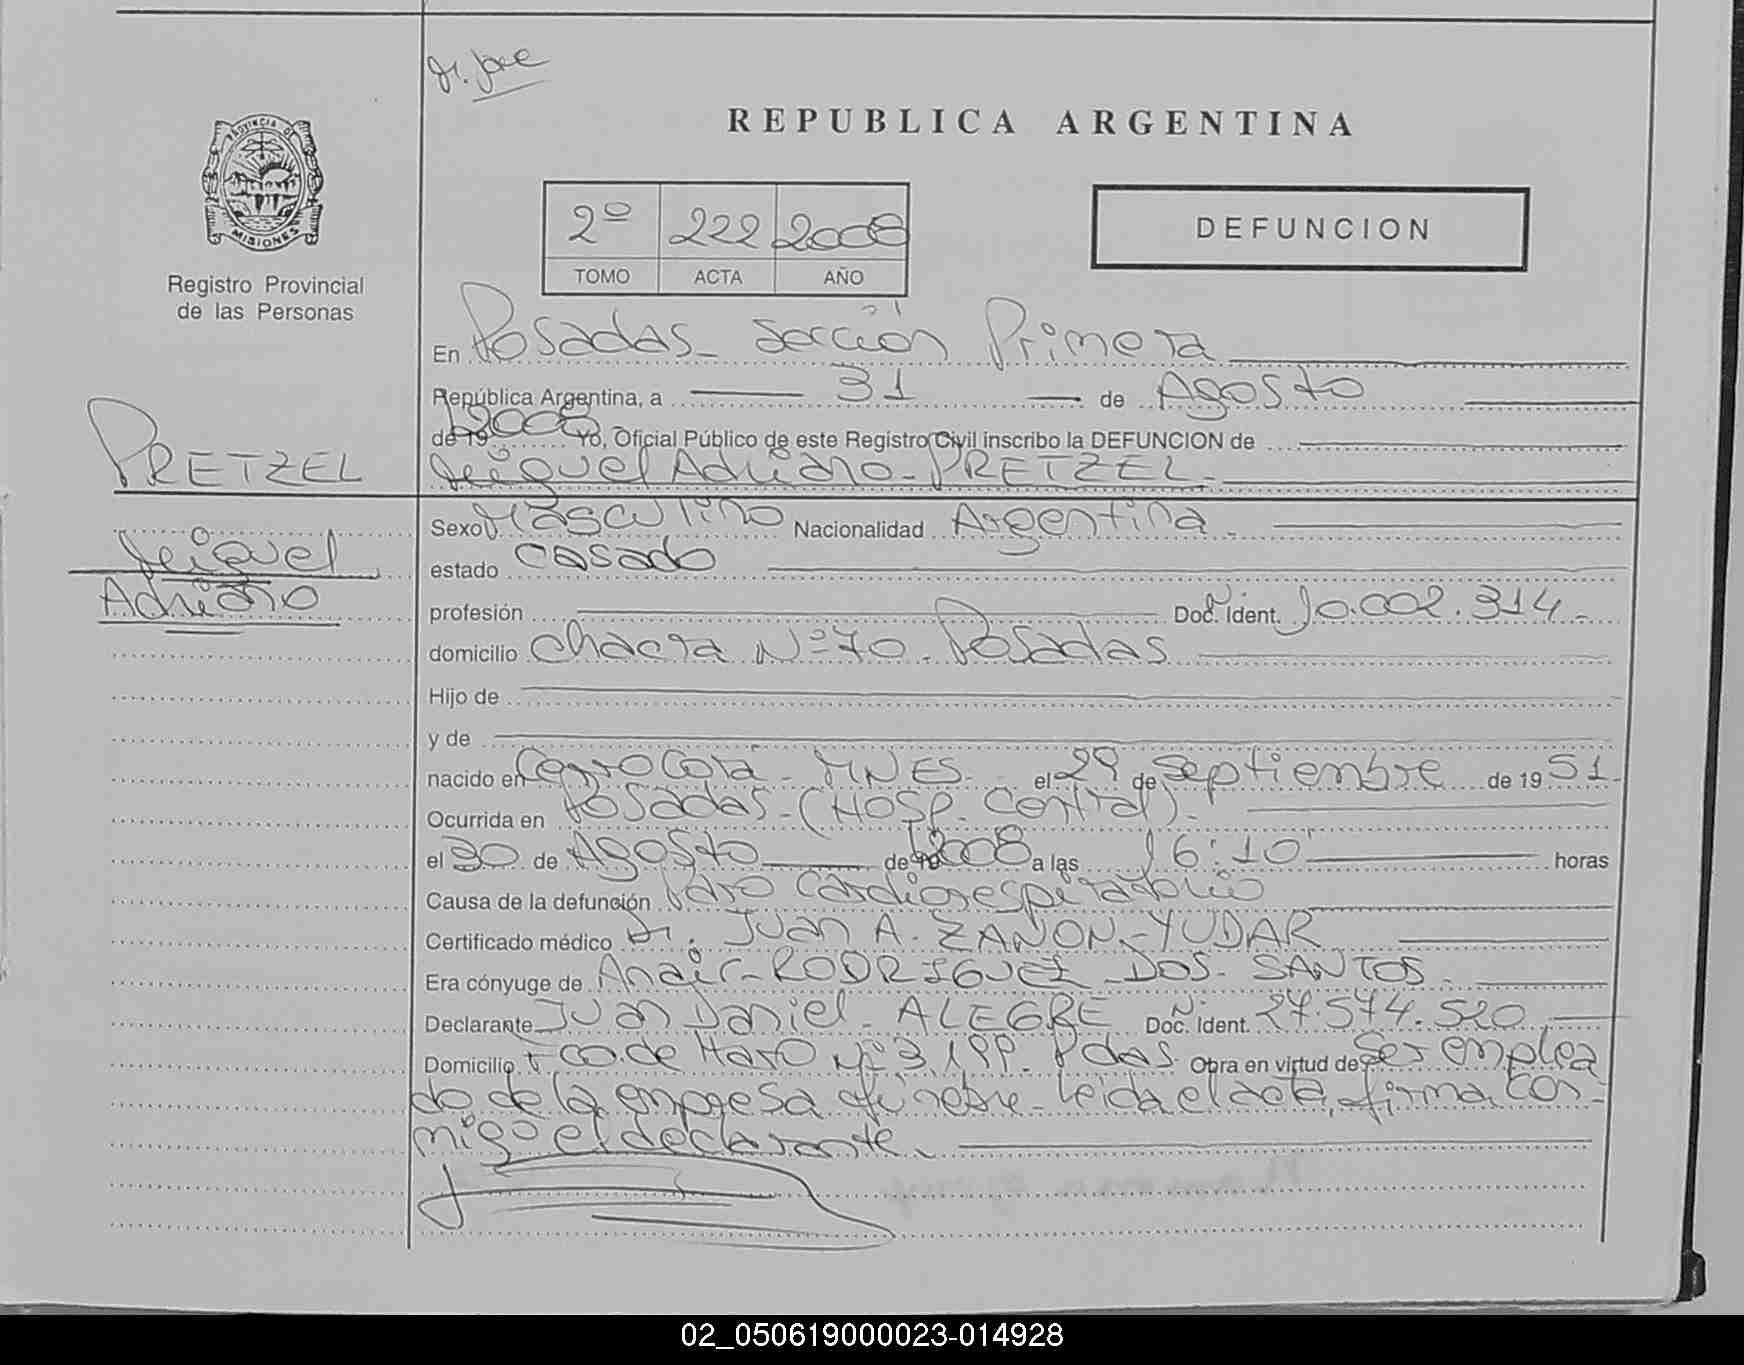 Dr. Jose
REPUBLICA ARGENTINA
PROVINCIA DE
MISIONES
2º 222 2008
TOMO ACTA AÑO
DEFUNCION
Registro Provincial
de las Personas
En Posadas - Sección Primera
República Argentina, a 31 de Agosto
de 19 2008 Yo, Oficial Público de este Registro Civil inscribo la DEFUNCION de
PRETZEL
Miguel Adriano - PRETZEL -
Sexo Masculino Nacionalidad Argentina -
Miguel
estado casado
Adriano
profesión Doc. Ident. Nº 10.002.314 -
domicilio Chacra Nº 70 - Posadas
Hijo de
y de
nacido en Cerro Corá - MNES - el 29 de Septiembre de 19 51 -
Ocurrida en Posadas - (Hosp. Central) -
el 30 de Agosto de 19 2008 a las 16:10 horas
Causa de la defunción Paro Cardiorespiratorio
Certificado médico Dr. Juan A. ZANON - YUDAR
Era cónyuge de Anair - RODRIGUEZ DOS SANTOS -
Declarante Juan Daniel - ALEGRE Doc. Ident. Nº 27.574.520
Domicilio Fco. de Haro Nº 3.199 - Pdas - Obra en virtud de Ser emplea
do de la empresa fúnebre - Leida el acta, firma con-
migo el declarante -
02_050619000023-014928